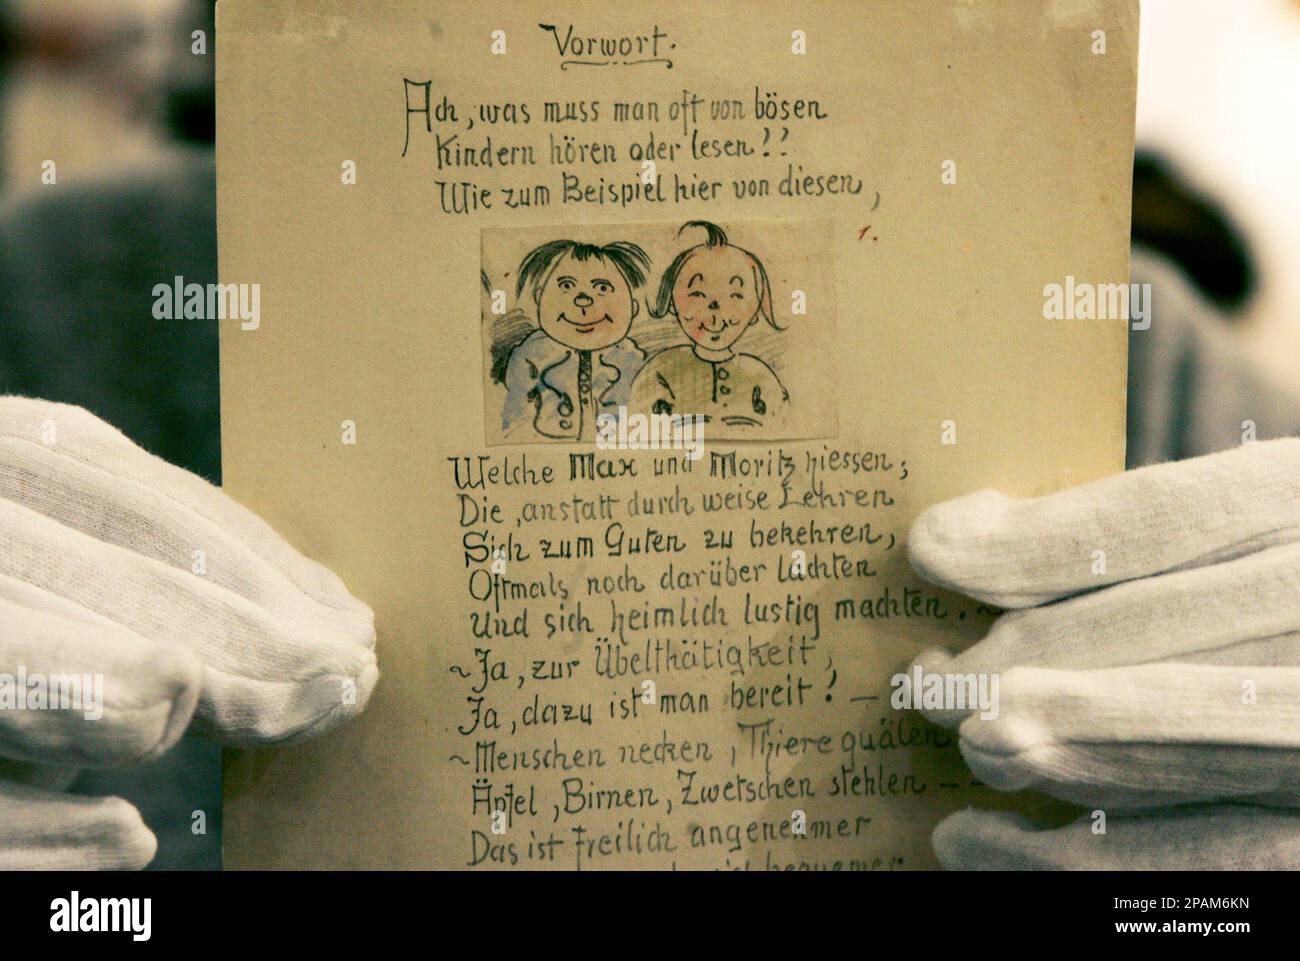 Vorwort.
Ach, was muss man oft von bösen
Kindern hören oder lesen!!
Wie zum Beispiel hier von diesen,
1.
Welche Max und Moritz hiessen;
Die, anstatt durch weise Lehren
Sich zum Guten zu bekehren,
Oftmals noch darüber lachten
Und sich heimlich lustig machten. ~
~Ja, zur Übelthätigkeit,
Ja, dazu ist man bereit! —
~Menschen necken, Thiere quälen
Äpfel, Birnen, Zwetschen stehlen — –
Das ist freilich angenehmer
bequemer
alamy
alamy
Image ID: 2PAM6KN
www.alamy.com